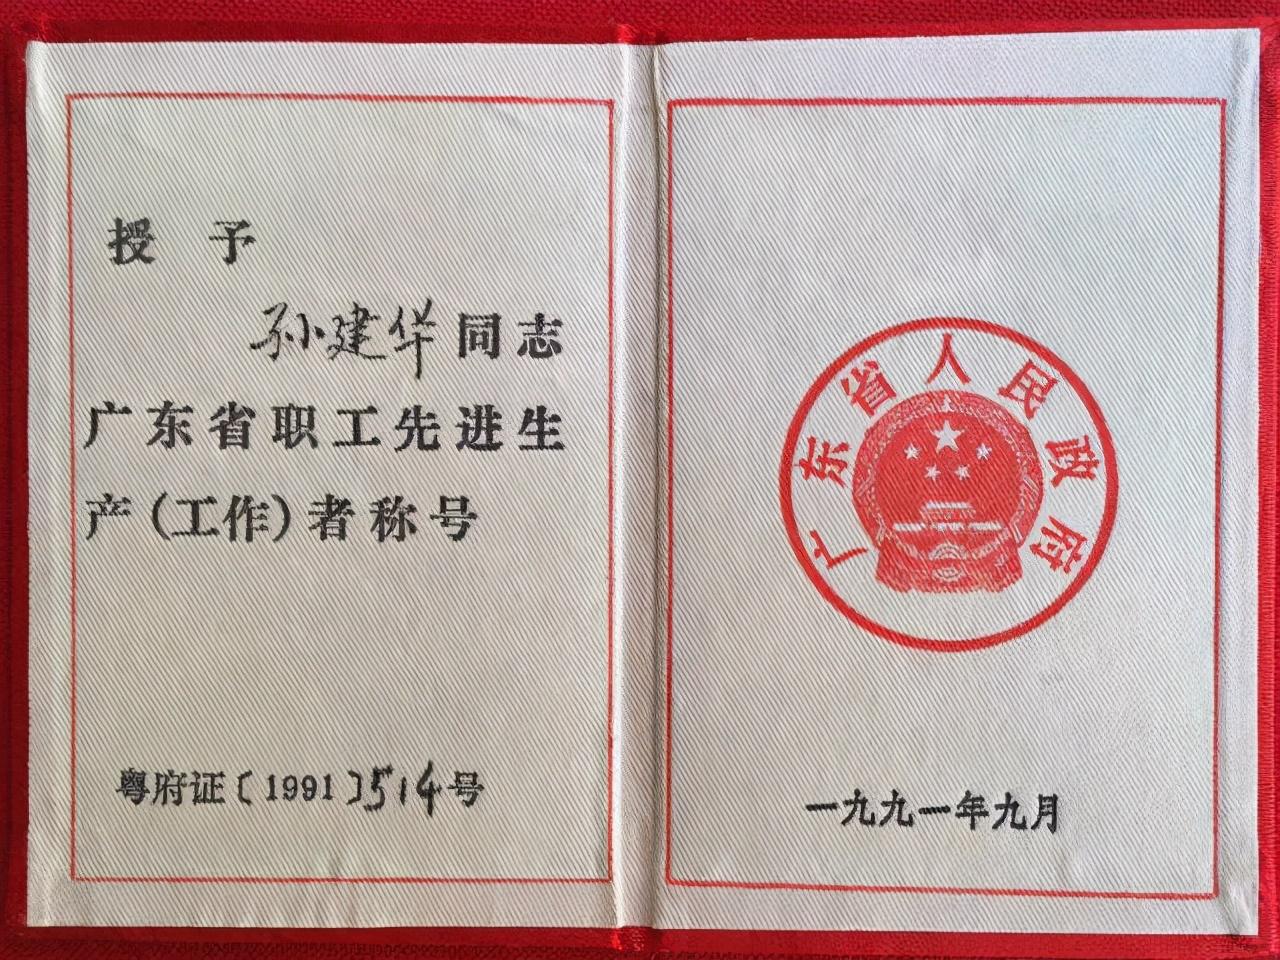 授 予
孙建华同志
广东省职工先进生
产(工作)者称号
粤府证〔1991〕514号
广东省人民政府
一九九一年九月